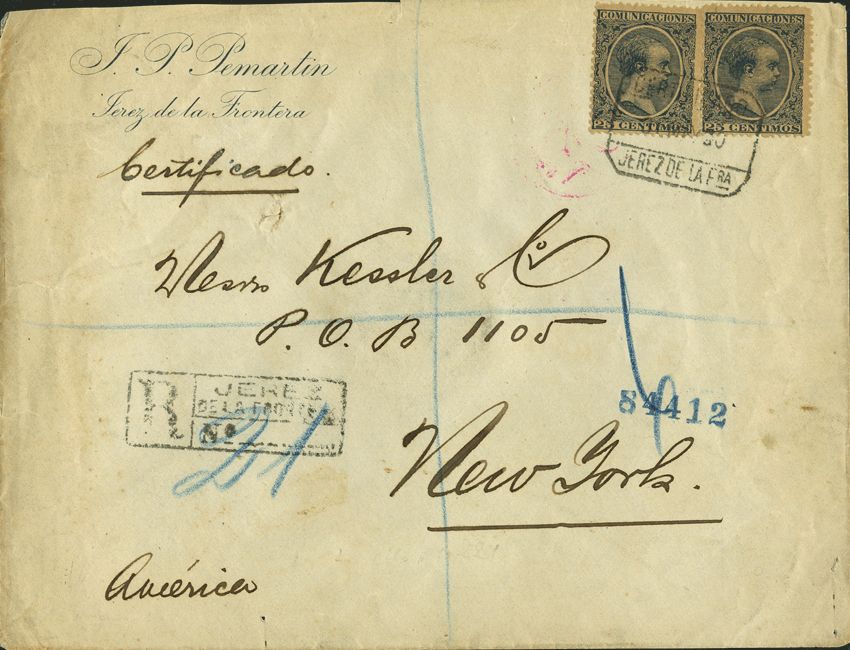 J. P. Pemartin
Jerez de la Frontera
COMUNICACIONES
25 CENTIMOS
COMUNICACIONES
25 CENTIMOS
JEREZ DE LA FRA
Certificado.
Messrs Kessler & Co
P. O. B 1105
R
JEREZ
DE LA FRONTERA
No
21
84412
New York.
América